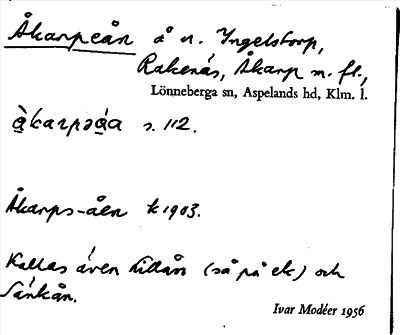 Åkarpeån å n. Yngelstorp,
Rakenäs, Åkarp m. fl.,
Lönneberga sn, Aspelands hd, Klm. l.
s. 112.
Åkarps-ån k 1903.
Kallas även Lillån (så på ek) och
Sänkån.
Ivar Modéer 1956